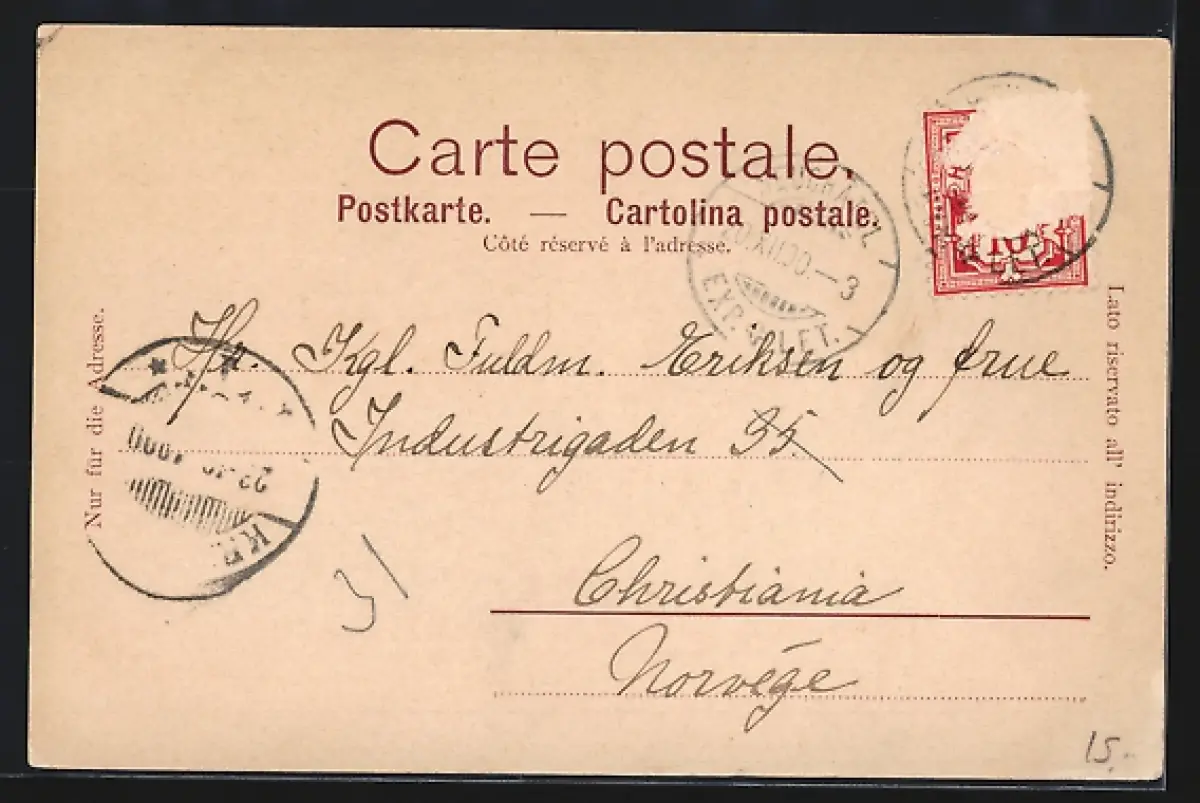 Carte postale.
Postkarte. — Cartolina postale.
Côté réservé à l'adresse.
10
XII.00.–3
EXP. LET.
Nur für die Adresse.
Hr. Kgl. Fuldm. Eriksen og frue
Industrigaden 35.
Christiania
Norvége
Lato riservato all' indirizzo.
KR
31
15.-